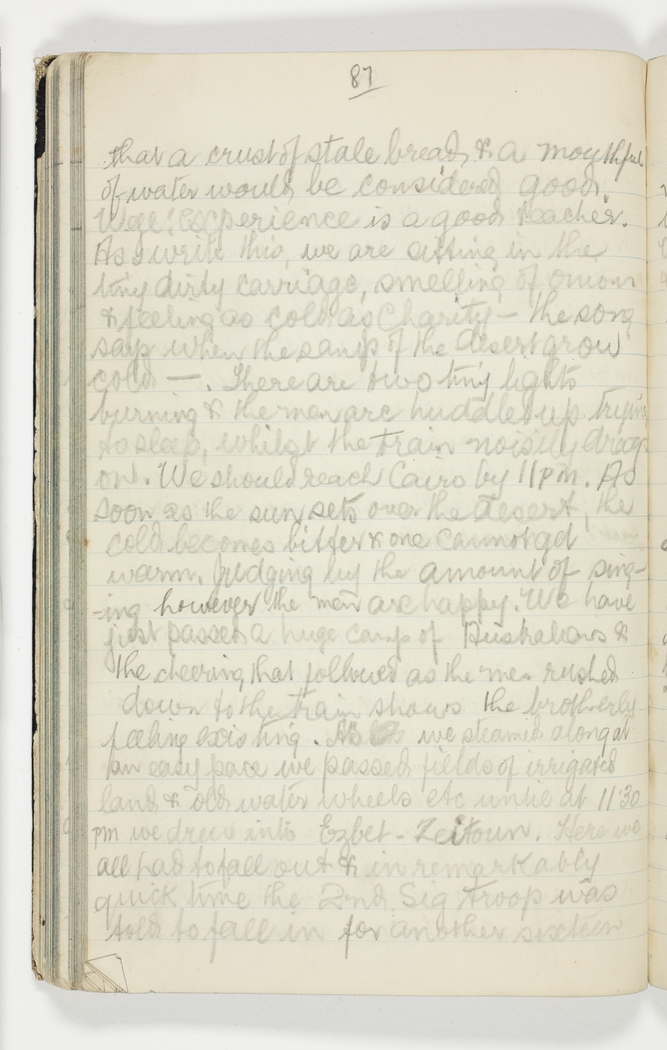 87
that a crust of stale bread, & a mouthful
of water would be considered good.
Experience is a good teacher.
As I write this, we are sitting in the
tiny dirty carriage, smelling of onion
& feeling as cold as Charity – the song
says when the sands of the desert grow
cold —. There are two tiny lights
burning & the men are huddled up trying
to sleep, whilst the train noisily drags
on. We should reach Cairo by 11pm. As
soon as the sun sets over the desert, the
cold becomes bitter & one cannot get
warm. Judging by the amount of sing-
-ing however the men are happy. We have
just passed a huge camp of Australians &
the cheering that followed as the men rushed
down to the train shows the brotherly
feeling existing. As we steamed along at
an easy pace we passed fields of irrigated
land & old water wheels etc until at 11.30
pm we drew into Ezbet - Zeitoun. Here we
all had to fall out & in remarkably
quick time the 2nd Sig Troop was
told to fall in for another sixteen